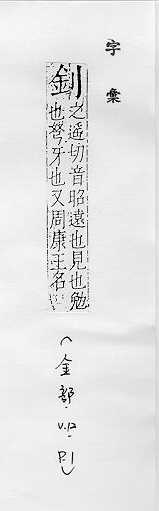 字彙
釗之遙切音昭遠也見也勉
也弩牙也又周康王名
(金部．V.12．P.1)